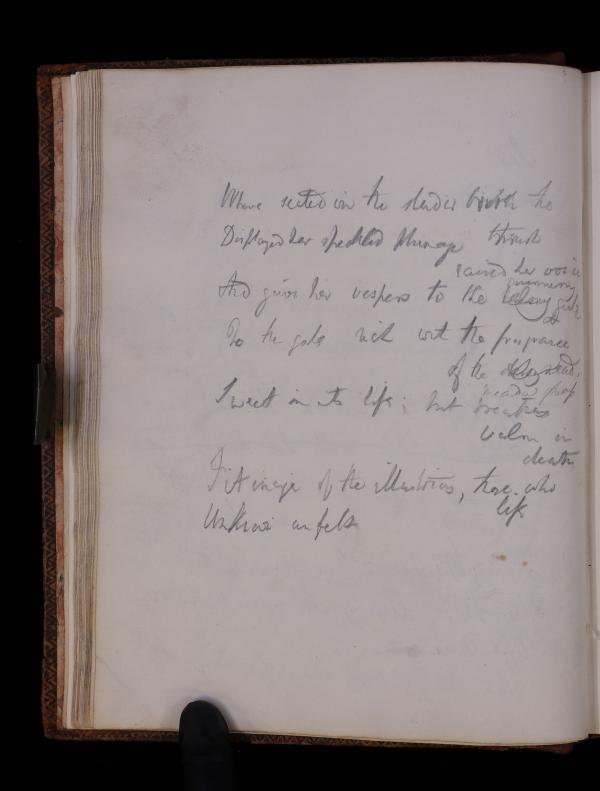 Where seated on the slender birch the
thrush
Displayed her speckled plumage
raised her voice
And given her vespers to the
To the gale rich with the fragrance
of the
meadow
Sweet in its life; but breathes
balm in
death
Fit image of the illustrious, those who
life
Unknown unfelt